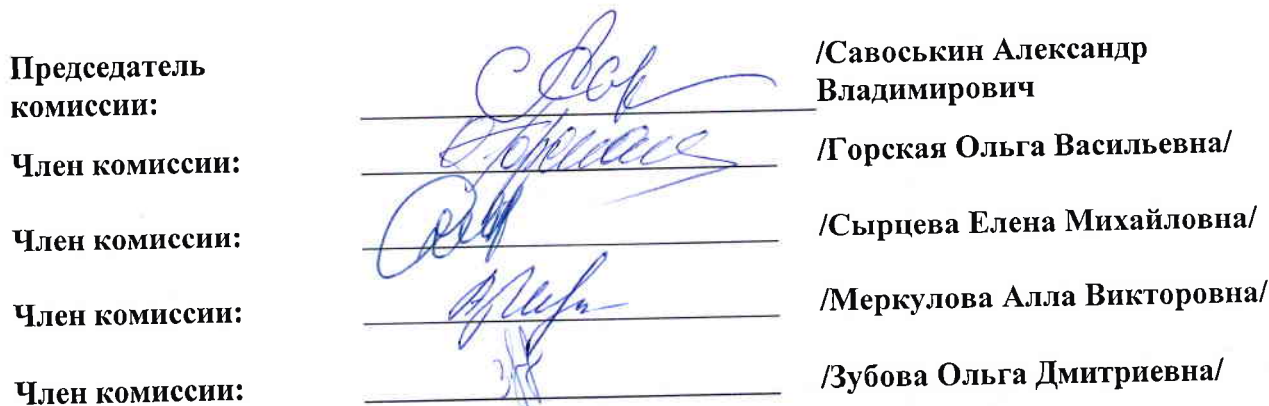 Председатель
комиссии:
/Савоськин Александр
Владимирович
Член комиссии:
/Горская Ольга Васильевна/
Член комиссии:
/Сырцева Елена Михайловна/
Член комиссии:
/Меркулова Алла Викторовна/
Член комиссии:
/Зубова Ольга Дмитриевна/